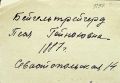 Бейгельтрейгерд
Песя Гейноховна
1887 г.
Севастопольская 14